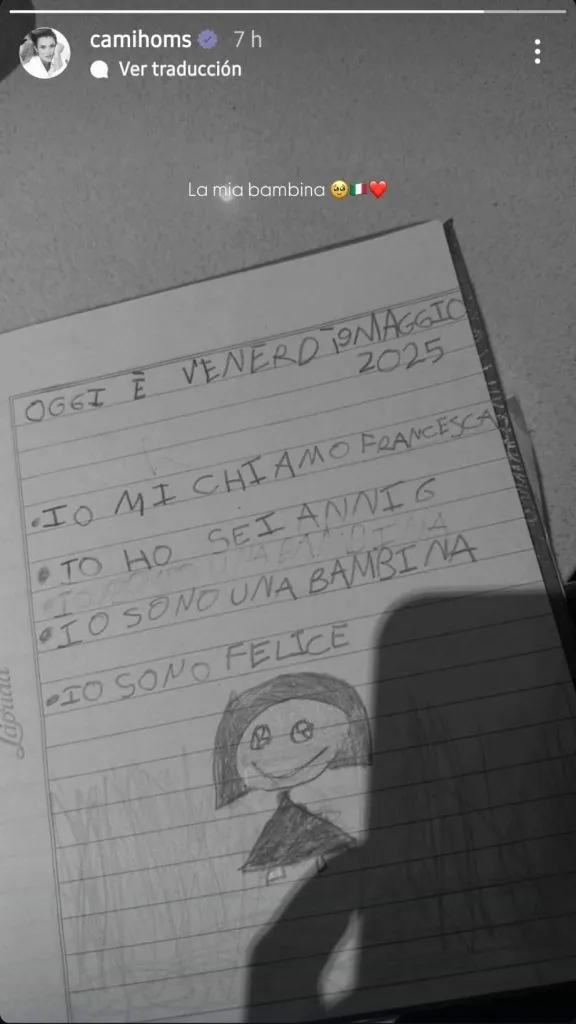 camihoms 7 h
Ver traducción
La mia bambina 🥹🇮🇹❤️
OGGI È VENERDI 9 MAGGIO
2025
•IO MI CHIAMO FRANCESCA
•IO HO SEI ANNI 6
•IO SONO UNA BAMBINA
•IO SONO FELICE
Láprida